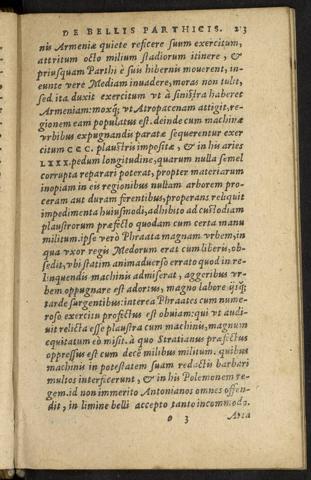 DE BELLIS PARTHICIS. 213
nis Armeniæ quiete reficere suum exercitum,
attritum octo milium stadiorum itinere, &
priusquam Parthi è suis hibernis mouerent, in-
eunte vere Mediam inuadere, moras non tulit,
sed ita duxit exercitum vt à sinistra haberet
Armeniam: moxq́; vt Atropacenam attigit, re-
gionem eam populatus est. deinde cum machinæ
vrbibus expugnandis paratæ sequerentur exer
citum CCC. plaustris impositæ, & in his aries
LXXX. pedum longitudine, quarum nulla semel
corrupta reparari poterat, propter materiarum
inopiam in eis regionibus nullam arborem pro-
ceram aut duram ferentibus, properans reliquit
impedimenta huiusmodi, adhibito ad custodiam
plaustrorum præfecto quodam cum certa manu
militum. ipse verò Phraata magnam vrbem, in
qua vxor regis Medorum erat cum liberis, ob-
sedit, vbi statim animaduerso errato quod in re-
linquendis machinis admiserat, aggeribus vr-
bem oppugnare est adortus, magno labore ijsq́;
tarde surgentibus: interea Phraates cum nume-
roso exercitu profectus est obuiam: qui vt audi-
uit relicta esse plaustra cum machinis, magnum
equitatum eò misit. à quo Stratianus præfectus
oppressus est cum decē milibus militum. quibus
machinis in potestatem suam redactis barbari
multos interficerunt, & in his Polemonem re-
gem. id non immerito Antonianos omnes offen-
dit, in limine belli accepto tanto incommodo.
o 3 Arta